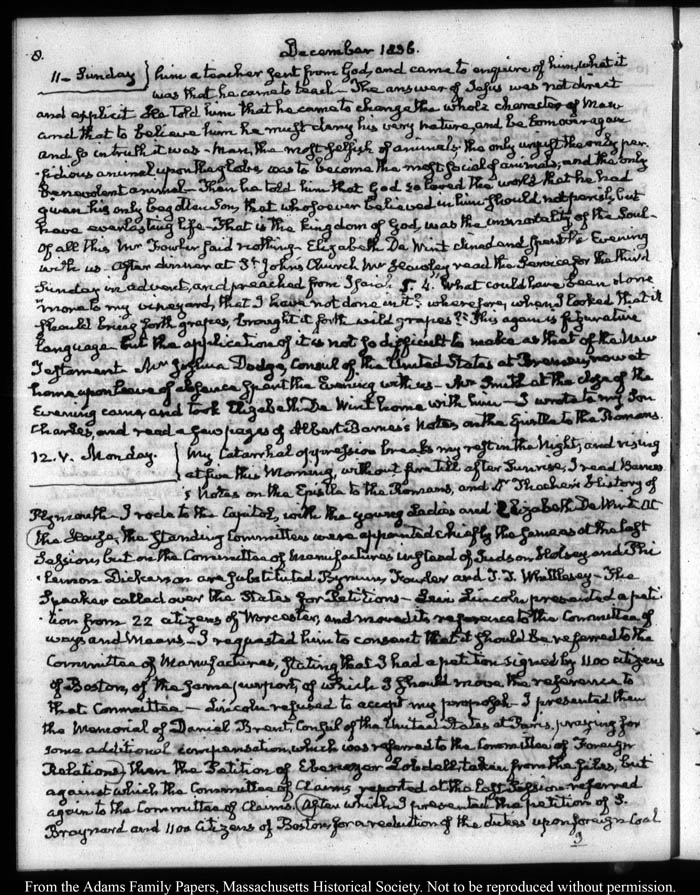 8. December 1836.
11 - Sunday } him a teacher sent from God, and came to enquire of him, what it
was that he came to teach - The answer of Jesus was not direct
and explicit He told him that he came to change the whole character of Man
and that to believe him he must deny his very nature, and be born over again
and so in truth it was - Man, the most selfish of animals, the only unjust the only per-
-fidious animal upon the globe, was to become the most social of animals, and the only
benevolent animal - Then he told him that God so loved the world that he had
given his only begotten Son, that whosoever believed in him should not perish, but
have everlasting life - That is the kingdom of God, was the immortality of the Soul -
Of all this Mr Fowler said nothing - Elizabeth De Wint dined and spent the Evening
with us. After dinner at St. John's Church Mr Hawley read the Service for the third
Sunday in advent, and preached from Isai. 5. 4. "What could have been done
"more to my vineyard, that I have not done in it? wherefore, when I looked that it
should bring forth grapes, brought it forth wild grapes?" This again is figurative
language but the application of it is not so difficult to make as that of the New
Testament Mr Joshua Dodge, Consul of the United States at Bremen, now at
home upon leave of absence spent the Evening with us - Mr Smith at the close of the
Evening came, and took Elizabeth De Wint home with him - I wrote to my Son
Charles, and read a few pages of Albert Barnes's Notes on the Epistle to the Romans.
12. V. Monday. } My Catarrhal oppression breaks my rest in the Night, and rising
at five this Morning, without fire till after Sunrise, I read Barnes
's Notes on the Epistle to the Romans, and Dr Thacher's History of
Plymouth - I rode to the Capitol, with the young Ladies and Elizabeth De Wint At
the House, the Standing Committees were appointed chiefly the same as at the last
Session, but on the Committee of Manufactures instead of Judson Halsey and Phi
-lemon Dickerson are substituted Bynum, Fowler and T. T. Whittlesey - The
Speaker called over the States for Petitions - Levi Lincoln presented a peti
-tion from 22 citizens of Worcester, and moved its reference to the Committee of
ways and Means - I requested him to consent that it should be referred to the
Committee of Manufactures, stating that I had a petition signed by 1100 citizens
of Boston, of the same purport, of which I should move the reference to
that Committee - Lincoln refused to accept my proposal - I presented then
the Memorial of Daniel Brent, Consul of the United States at Paris, praying for
some additional compensation, which was referred to the Committee of Foreign
Relations, then the Petition of Ebenezer Lobdell, taken from the files, but
against which the Committee of Claims reported at the last Session referred
again to the Committee of Claims. After which I presented the petition of S.
Braynard and 1100 Citizens of Boston for a reduction of the duties upon foreign Coal
From the Adams Family Papers, Massachusetts Historical Society. Not to be reproduced without permission.